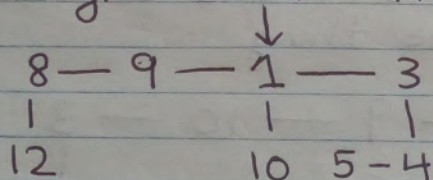 ↓
8 — 9 — 1 — 3
| | |
12 10 5 - 4